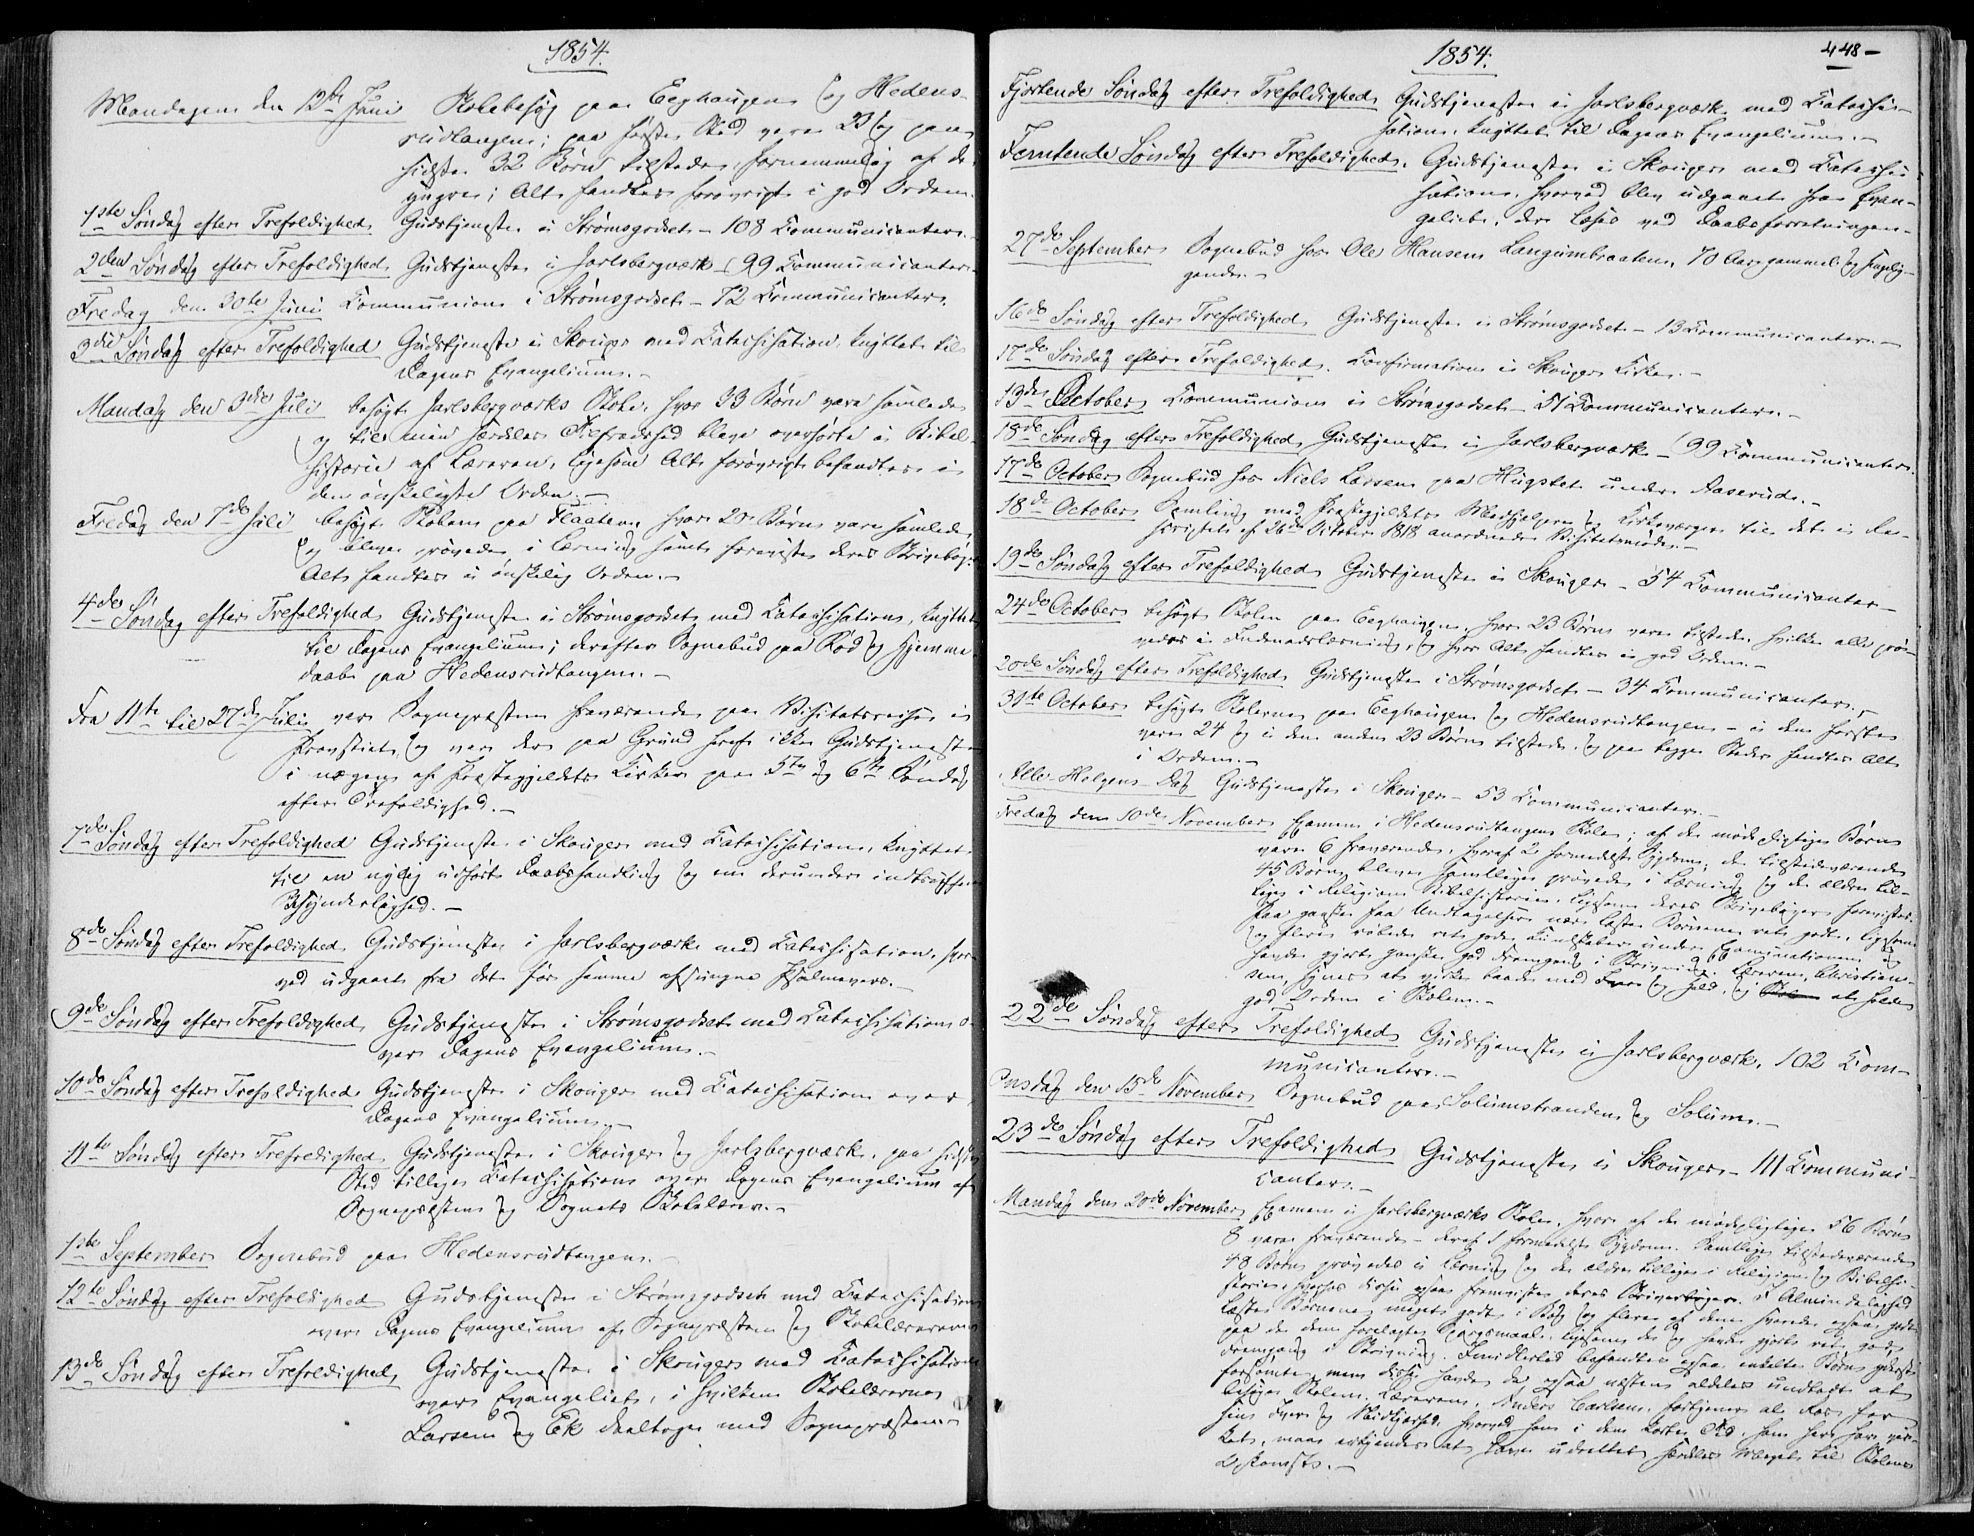 1854.
Mandagen den 12te Juni Skolebesøg paa Eeghaugen og Hedens-
rudtangen; paa første Sted vare 23 og paa
sidste 32 Børn tilstede, fornemmelig af de
yngre; Alt fandtes forøvrigt i god Orden.
1ste Søndag efter Trefoldighed Gudstjeneste i Strømsgodset - 108 Communicanter.
2den Søndag efter Trefoldighed Gudstjeneste i Jarlsbergværk - 99 Communicanter.
Fredag den 30te Juni Communion i Strømsgodset - 72 Communicanter.
3die Søndag efter Trefoldighed Gudstjeneste i Skouger med Catechisation, knyttet til
Dagens Evangelium.
Mandag den 3die Juli besøgt Jarlsbergværks Skole, hvor 33 Børn vare samlede
og til min særdeles Tilfredshed bleve overhørte i Bibel-
historie af Læreren, ligesom Alt forøvrigt befandtes i
den ønskeligste Orden.
Fredag den 7de Juli besøgt Skolen paa Flaaten, hvor 20 Børn vare samlede
og bleve prøvede i Læsning samt foreviste deres Skrivebøger.
Alt fandtes i ønskelig Orden.
4de Søndag efter Trefoldighed Gudstjeneste i Strømsgodset med Catechisation, knyttet
til Dagens Evangelium; derefter Sognebud paa Rød og Hjemme-
daab paa Hedensrudtangen.
Fra 11te til 27de Juli var Sognepræsten fraværende paa Visitatsreise i
Provstiet, og var der paa Grund heraf ikke Gudstjeneste
i nogen af Præstegjeldets Kirker paa 5te og 6te Søndag
efter Trefoldighed.
7de Søndag efter Trefoldighed Gudstjeneste i Skouger med Catechisation, knyttet
til en nylig udført Daabshandling og en derunder indtruffen
8de Søndag efter Trefoldighed Gudstjeneste i Jarlsbergværk med Catechisation, hvor-
ved udgaaet fra det før samme afsungne Psalmevers.
9de Søndag efter Trefoldighed Gudstjeneste i Strømsgodset med Catechisation o-
ver Dagens Evangelium.
10de Søndag efter Trefoldighed Gudstjeneste i Skouger med Catechisation over
Dagens Evangelium.
11te Søndag efter Trefoldighed Gudstjeneste i Skouger og Jarlsbergværk, paa sidste
Sted tillige Catechisation over Dagens Evangelium af
Sognepræsten og Sognets Skolelærer.
1ste September Sognebud paa Hedensrudtangen.
12te Søndag efter Trefoldighed Gudstjeneste i Strømsgodset med Catechisation
over Dagens Evangelium af Sognepræsten og Skolelæreren
13de Søndag efter Trefoldighed Gudstjeneste i Skouger med Catechisation
over Evangeliet, i hvilken Skolelærerne
Larsen og Ek deeltoge med Sognepræsten
1854.
448-
Fjortende Søndag efter Trefoldighed Gudstjeneste i Jarlsbergværk med Catechi-
sation, knyttet til Dagens Evangelium.
Femtende Søndag efter Trefoldighed. Gudstjeneste i Skouger med Catechi-
sation, hvorved blev udgaaet fra Evan-
geliet, der læses ved Daabsforretningen.
27de September Sognebud hos Ole Hansen Langumbraaten, 70 Aar gammel og sengelig-
gende.
16de Søndag efter Trefoldighed Gudstjeneste i Strømsgodset - 13 Communicanter.
17de Søndag efter Trefoldighed. Confirmation i Skouger Kirke.
13de October Communion i Strømsgodset - 51 Communicanter.
18de Søndag efter Trefoldighed Gudstjeneste i Jarlsbergværk - 99 Communicanter.
17de October Sognebud hos Niels Larsen paa Hugstet under Aaserud.
18de October Samling med Præstegjeldets Medhjelpere og Kirkeværger til det i Re-
scriptet af 26de October 1818 anordnede Visitatsmøde.
19de Søndag efter Trefoldighed Gudstjeneste i Skouger - 54 Communicanter
24de October besøgt Skolen paa Eeghaugen, hvor 23 Børn vare tilstede, hvilke alle prø-
vedes i Indenadslæsning, og hvor Alt fandtes i god Orden.
20de Søndag efter Trefoldighed Gudstjeneste i Strømsgodset - 34 Communicanter.
31te October besøgt Skolerne paa Eeghaugen og Hedensrudtangen - i den første
vare 24 og i den anden 23 Børn tilstede, og paa begge Steder fandtes Alt
i Orden.
Alle-Helgens-Dag Gudstjeneste i Skouger - 53 Communicanter.
Fredag den 10de November Examen i Hedensrudtangens Skole; af de mødepligtige Børn
vare 6 fraværende, hvoraf 2 formedelst Sygdom; de tilstedeværende
45 Børn bleve samtlige prøvede i Læsning og de ældre til-
lige i Religion og Bibelhistorie, ligesom deres Skrivebøger forevistes.
Paa ganske faa Undtagelser nær læste Børnene ret godt, ligesom
og flere røbede ret gode Kundskaber under Examinationen og
havde gjort ganske god Fremgang i Skrivning. Læreren, Christian-
sen, synes at virke baade med Iver og Held, og at holde
god Orden i Skolen.
22de Søndag efter Trefoldighed Gudstjeneste i Jarlsbergværk, 102 Com-
municanter.
Onsdag den 15de November Sognebud paa Solumstranden og Solum.
23de Søndag efter Trefoldighed Gudstjeneste i Skouger - 111 Communi-
canter.
Mandag den 20de November Examen i Jarlsbergværks Skole, hvor af de mødepligtige 56 Børn
8 vare fraværende - deraf 1 formedelst Sygdom. Samtlige tilstedeværende
48 Børn prøvedes i Læsning og de ældre tillige i Religion og Bibelhi-
storie, hvorhos disse ogsaa foreviste deres Skrivebøger. I Almindelighed
læste Børnene meget godt i Bog og flere af dem svarede ogsaa godt
paa de dem forelagte Spørgsmaal, ligesom de og havde gjort ret god
Fremgang i Skrivning. Imidlertid befandtes ogsaa enkelte Børn yderst
forsømte, men disse havde da ogsaa næsten aldeles undladt at
besøge Skolen. Læreren, Anders Carlsen, fortjener al Roes for
sin Iver og Nidkjærhed, hvorved han i den korte Tid, han har her vir-
ket, maa erkjendes at have udrettet særdeles Meget til Skolens
Opkomst.